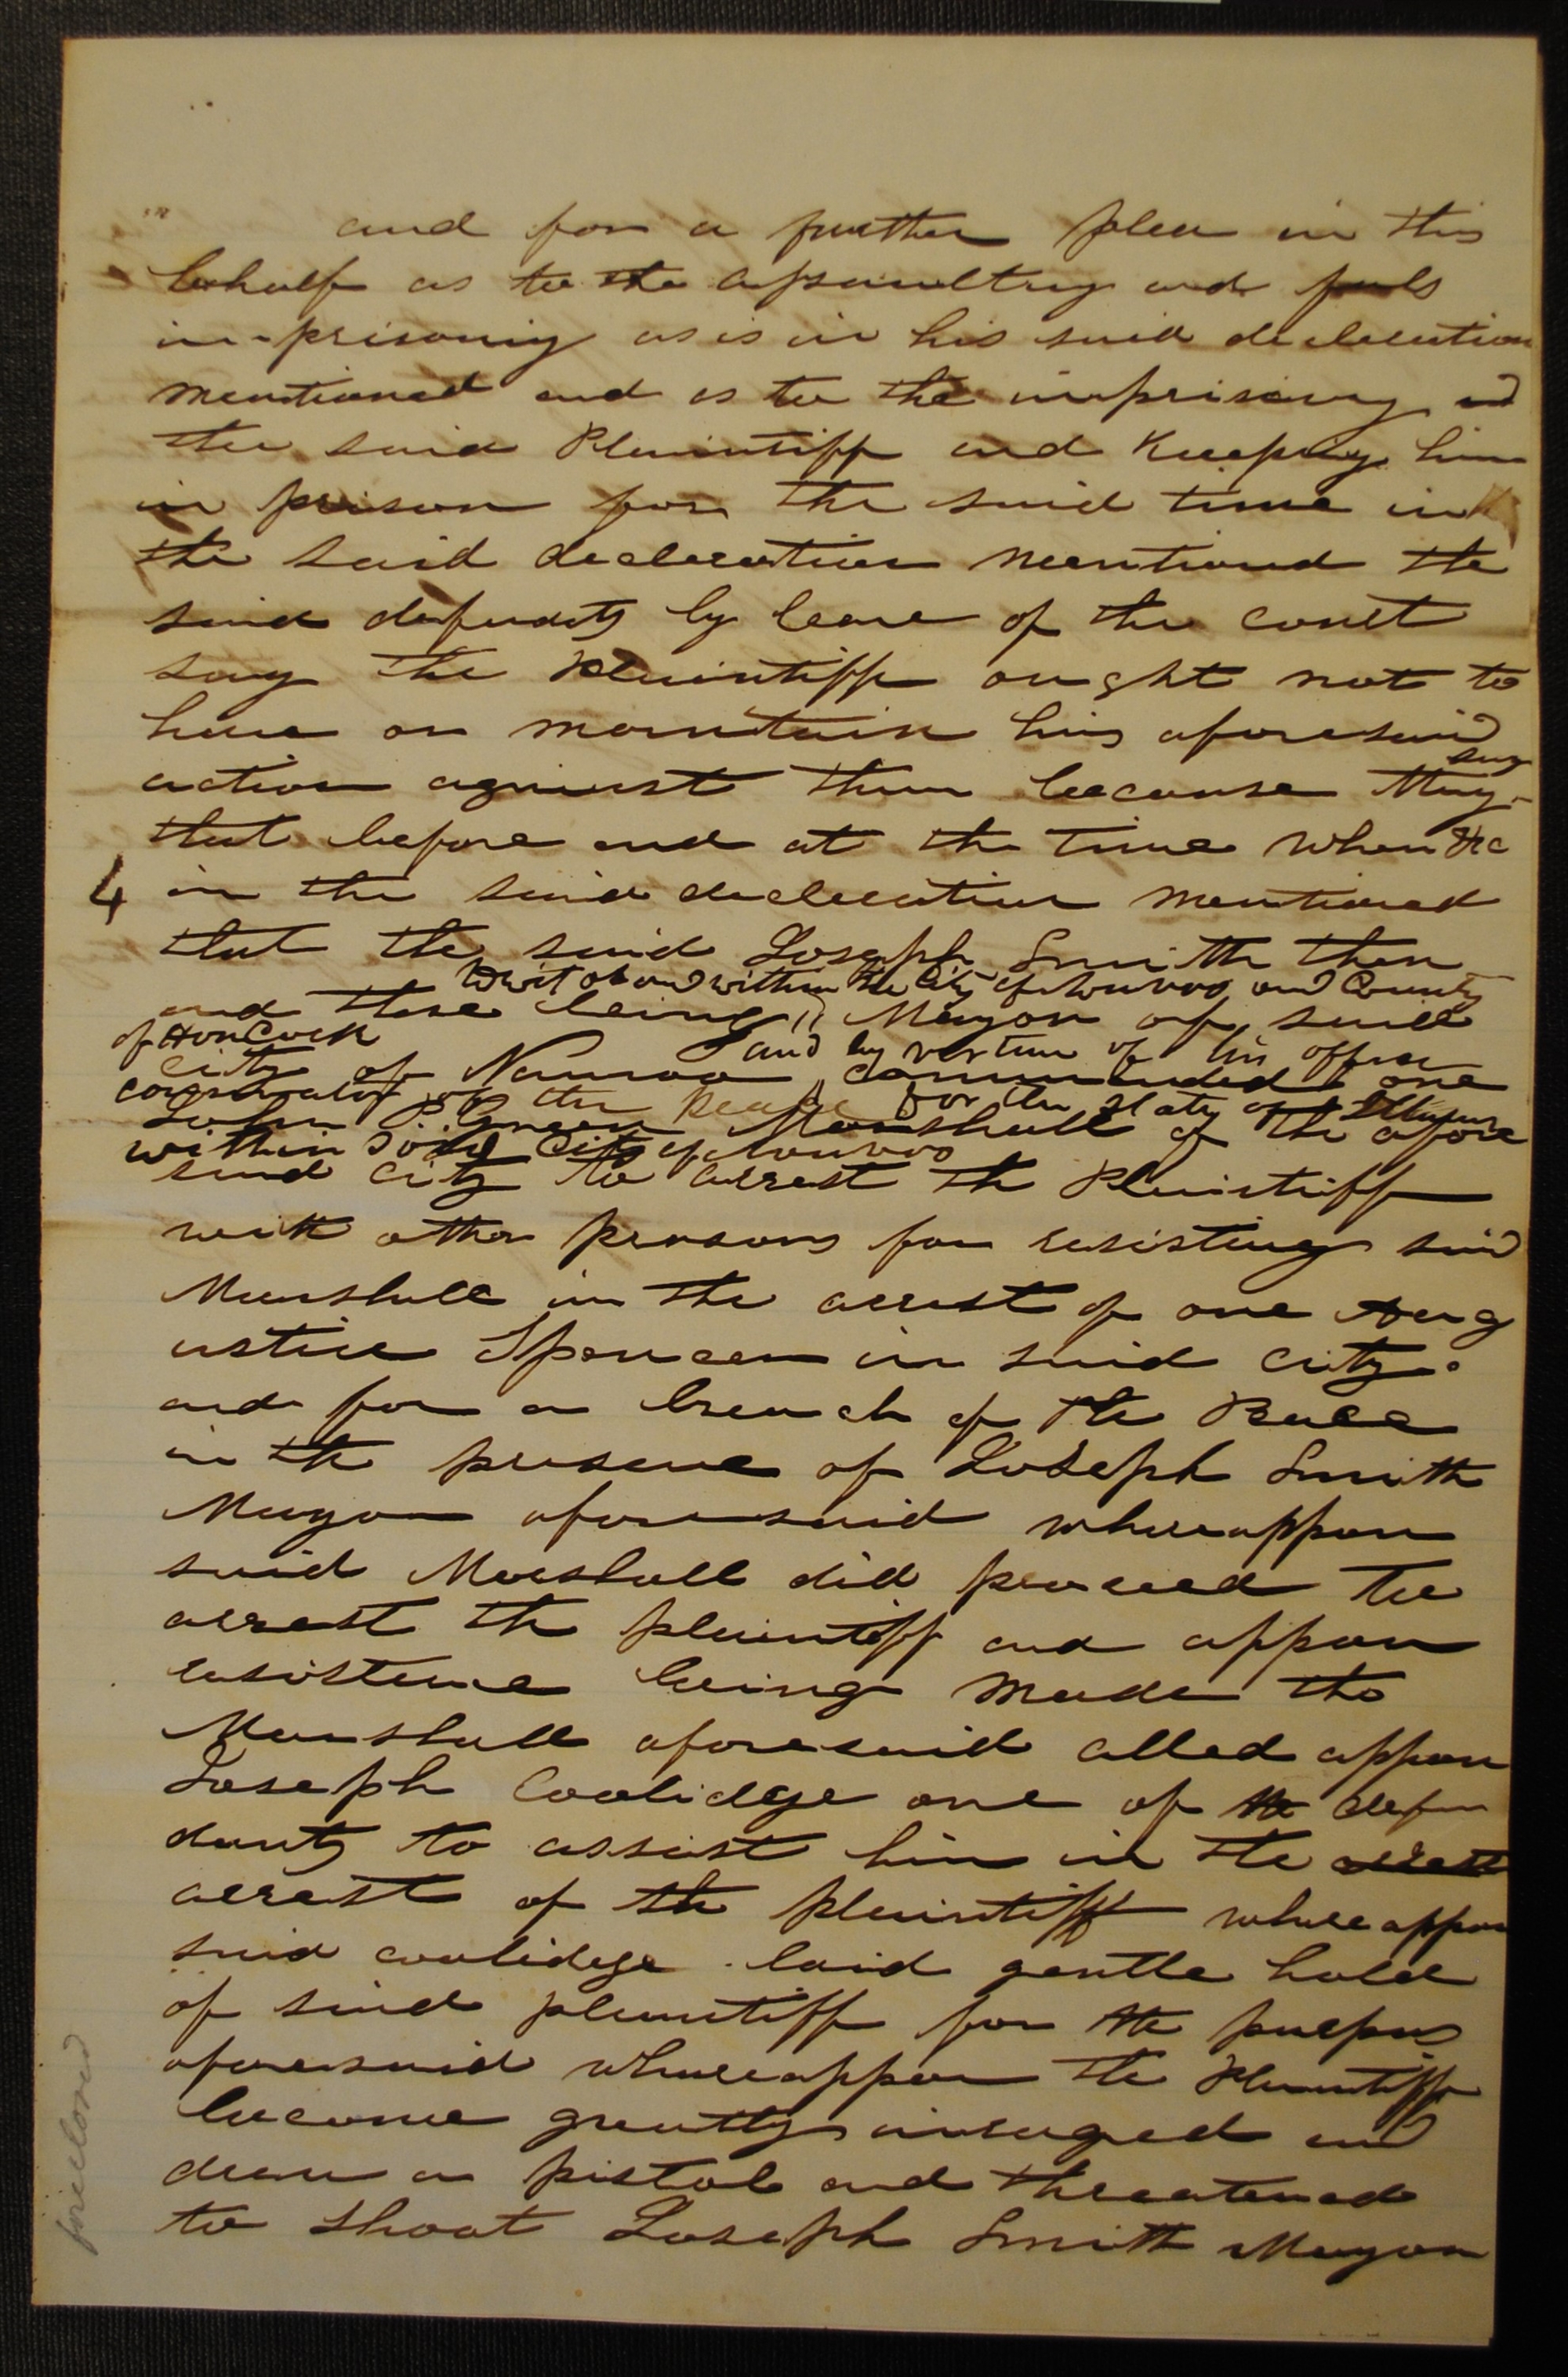 and for a further plea in this
behalf as to the assaulting and fals
imprisoning as is in his said declaration
mentioned and as to the imprisoning
the said Plaintiff and Keeping him
in prison for the said time in
the said declaration mentiond the
said defendts by leave of the court
say the Plaintiff ought not to
have or maintain his aforesaid
say
action against them because they
that before and at the time when &c
4 in the said declaration mentioned
that the said Joseph Smith then
towit at and within the City of Nauvoo and County
and there being Mayor of said
of Hancock
and by vertue of his office
city of Nauvoo commanded one
conservator of the Peace for the State of Illinois
John P. Green Marshall of the afore
within said City of Nauvoo
said city to arrest the Plaintiff
with other persons for resisting said
Marshall in the arrest of one Aug
ustine Spencer in said city.
and for a breach of the Peace
in the presence of Joseph Smith
Mayor aforesaid whereappon
said Marshall did proceed to
arrest the plaintiff and appon
resistence being made the
Marshall aforesaid called appon
Joseph Coolidge one of the defen
dants to assist him in the arrest
arrest of the plaintiff whereappon
said coolidge laid gentle hold
of said plaintiff for the purpus
aforesaid whereappon the Plaintiff
became greatly inraged and
drew a pistol and threatened
to shoot Joseph Smith Mayor